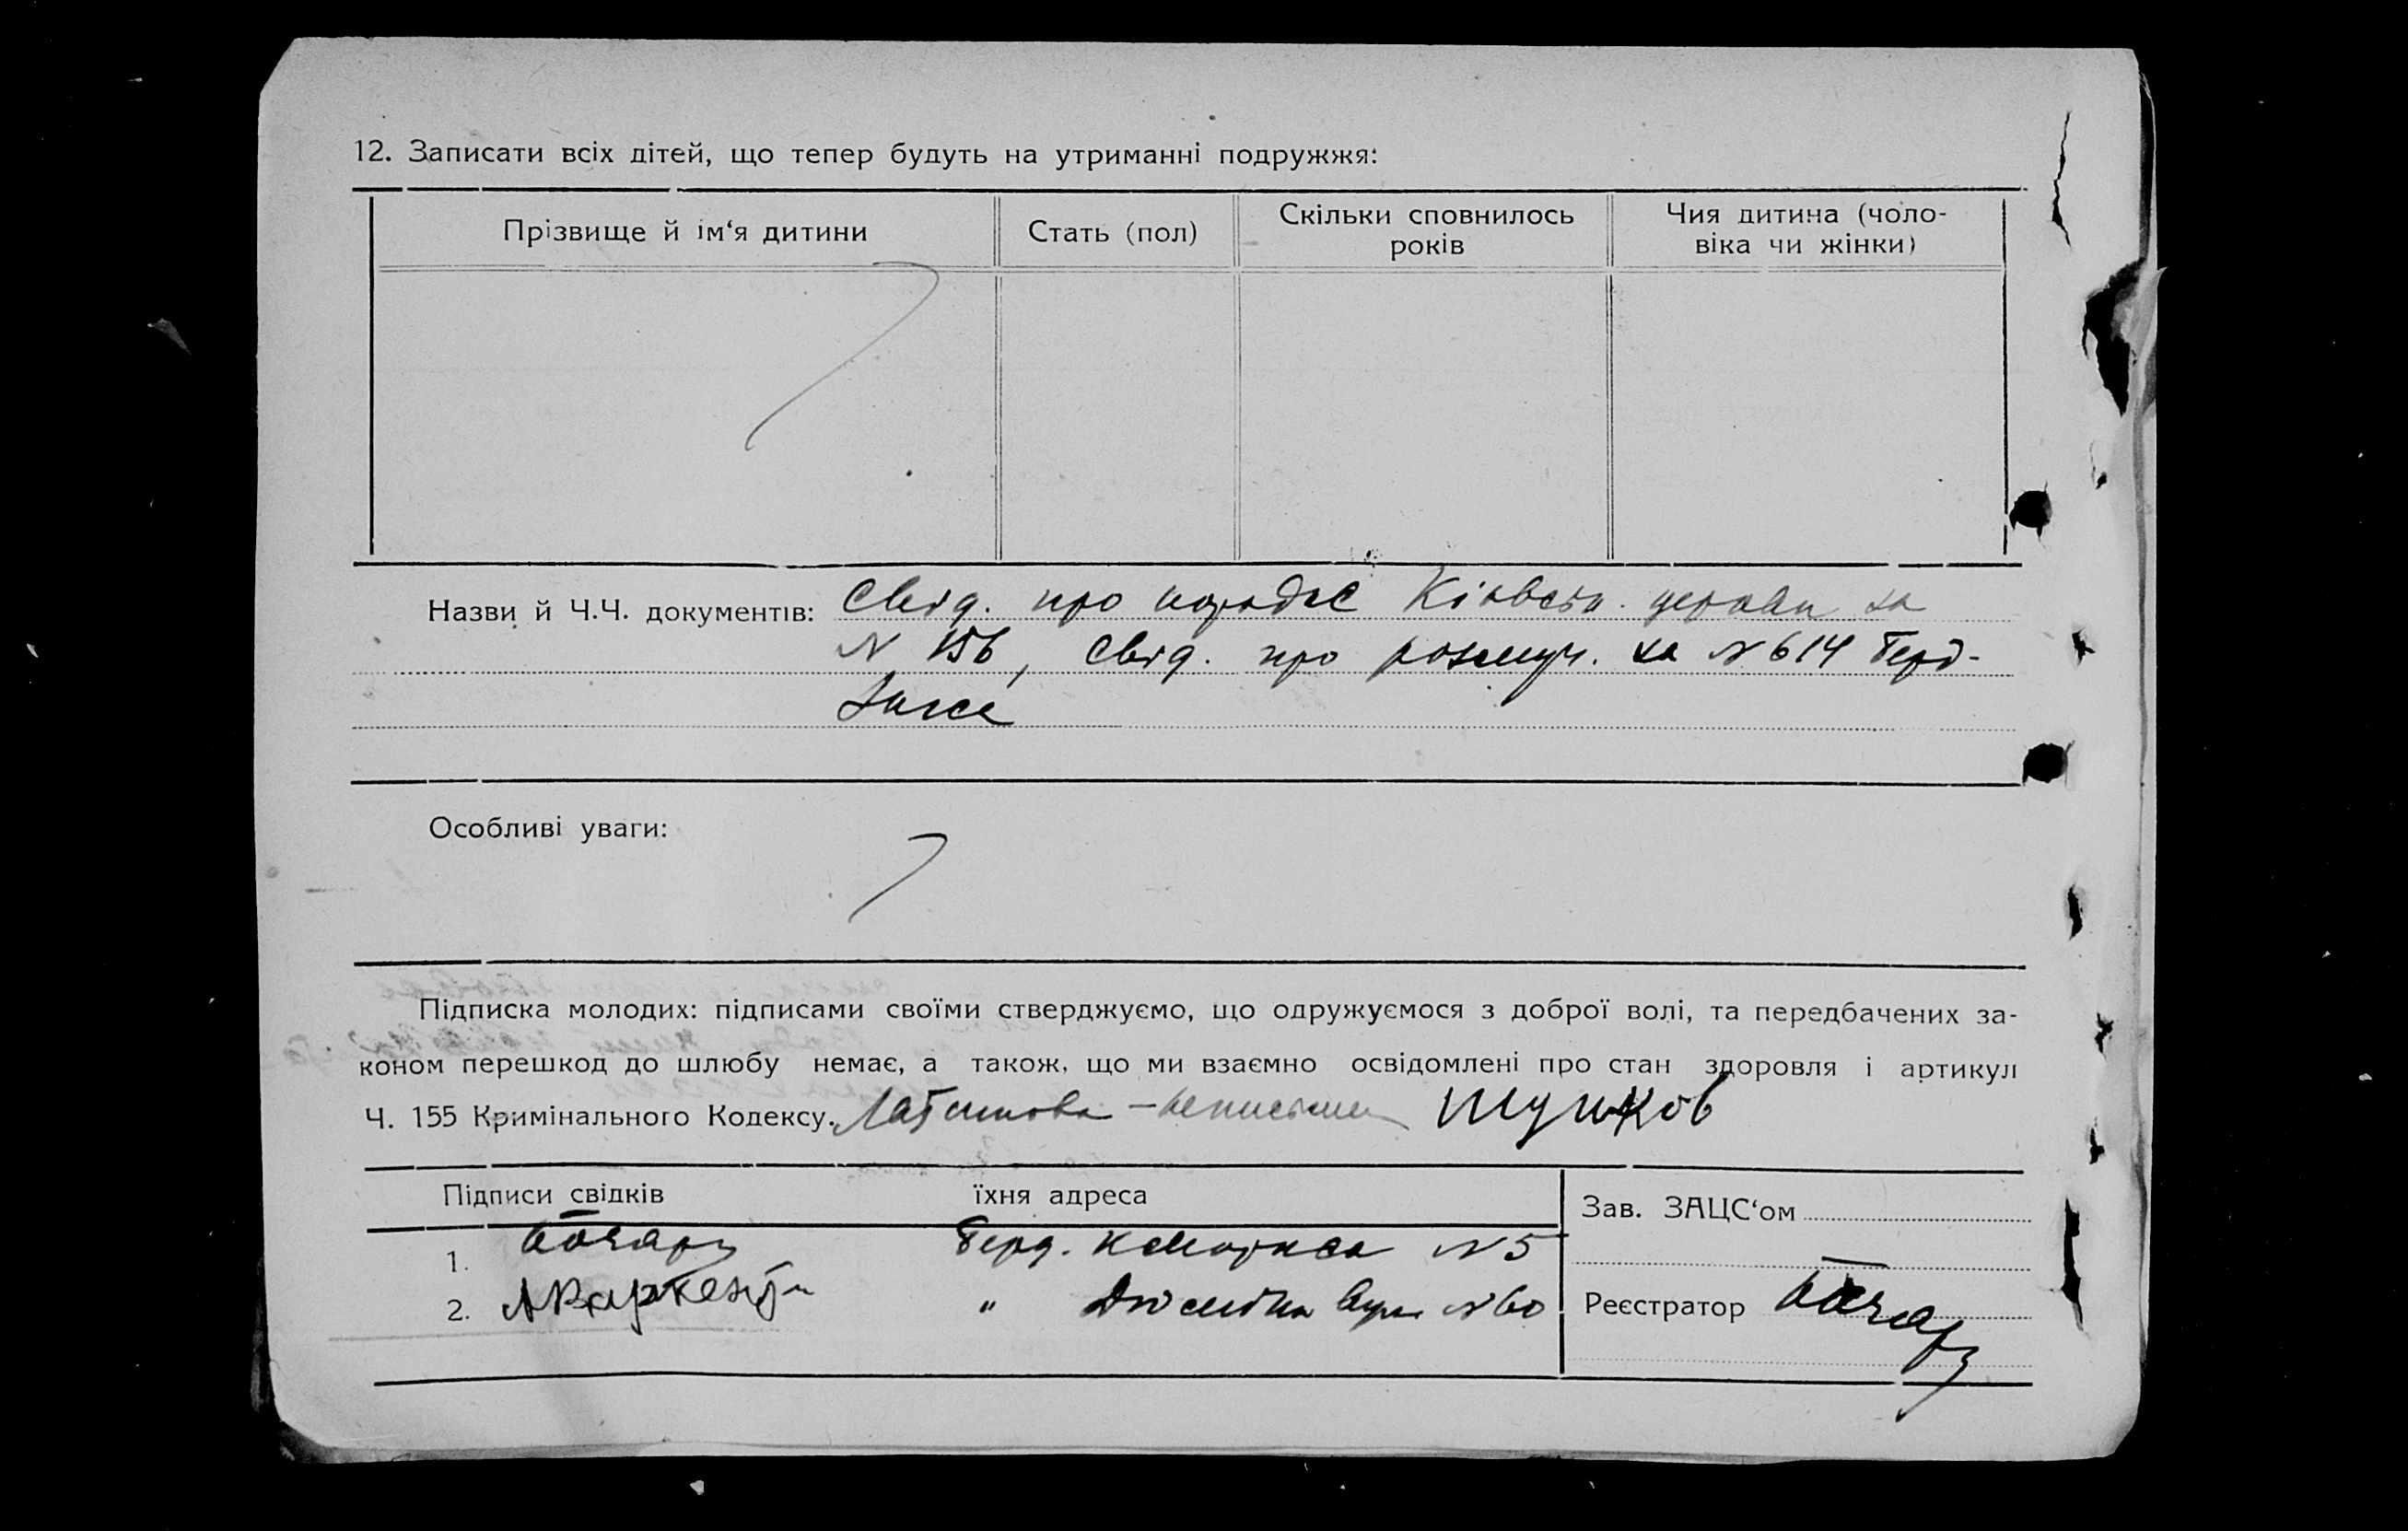 12. Записати всіх дітей, що тепер будуть на утриманні подружжя:
Прізвище й ім‘я дитини
Стать (пол)
Скільки сповнилось
років
Чия дитина (чоло-
віка чи жінки)
Назви й Ч.Ч. документів: Свід. про
N 156, Свід. про за N 614 Берд-
Особливі уваги:
Підписка молодих: підписами своїми стверджуємо, що одружуємося з доброї волі, та передбачених за-
коном перешкод до шлюбу немає, а також, що ми взаємно освідомлені про стан здоровля і артикул
Ч. 155 Кримінального Кодексу.
Підписи свідків їхня адреса
Зав. ЗАЦС‘ом
1. Берд. N 5
2. " вул. N 60
Реєстратор